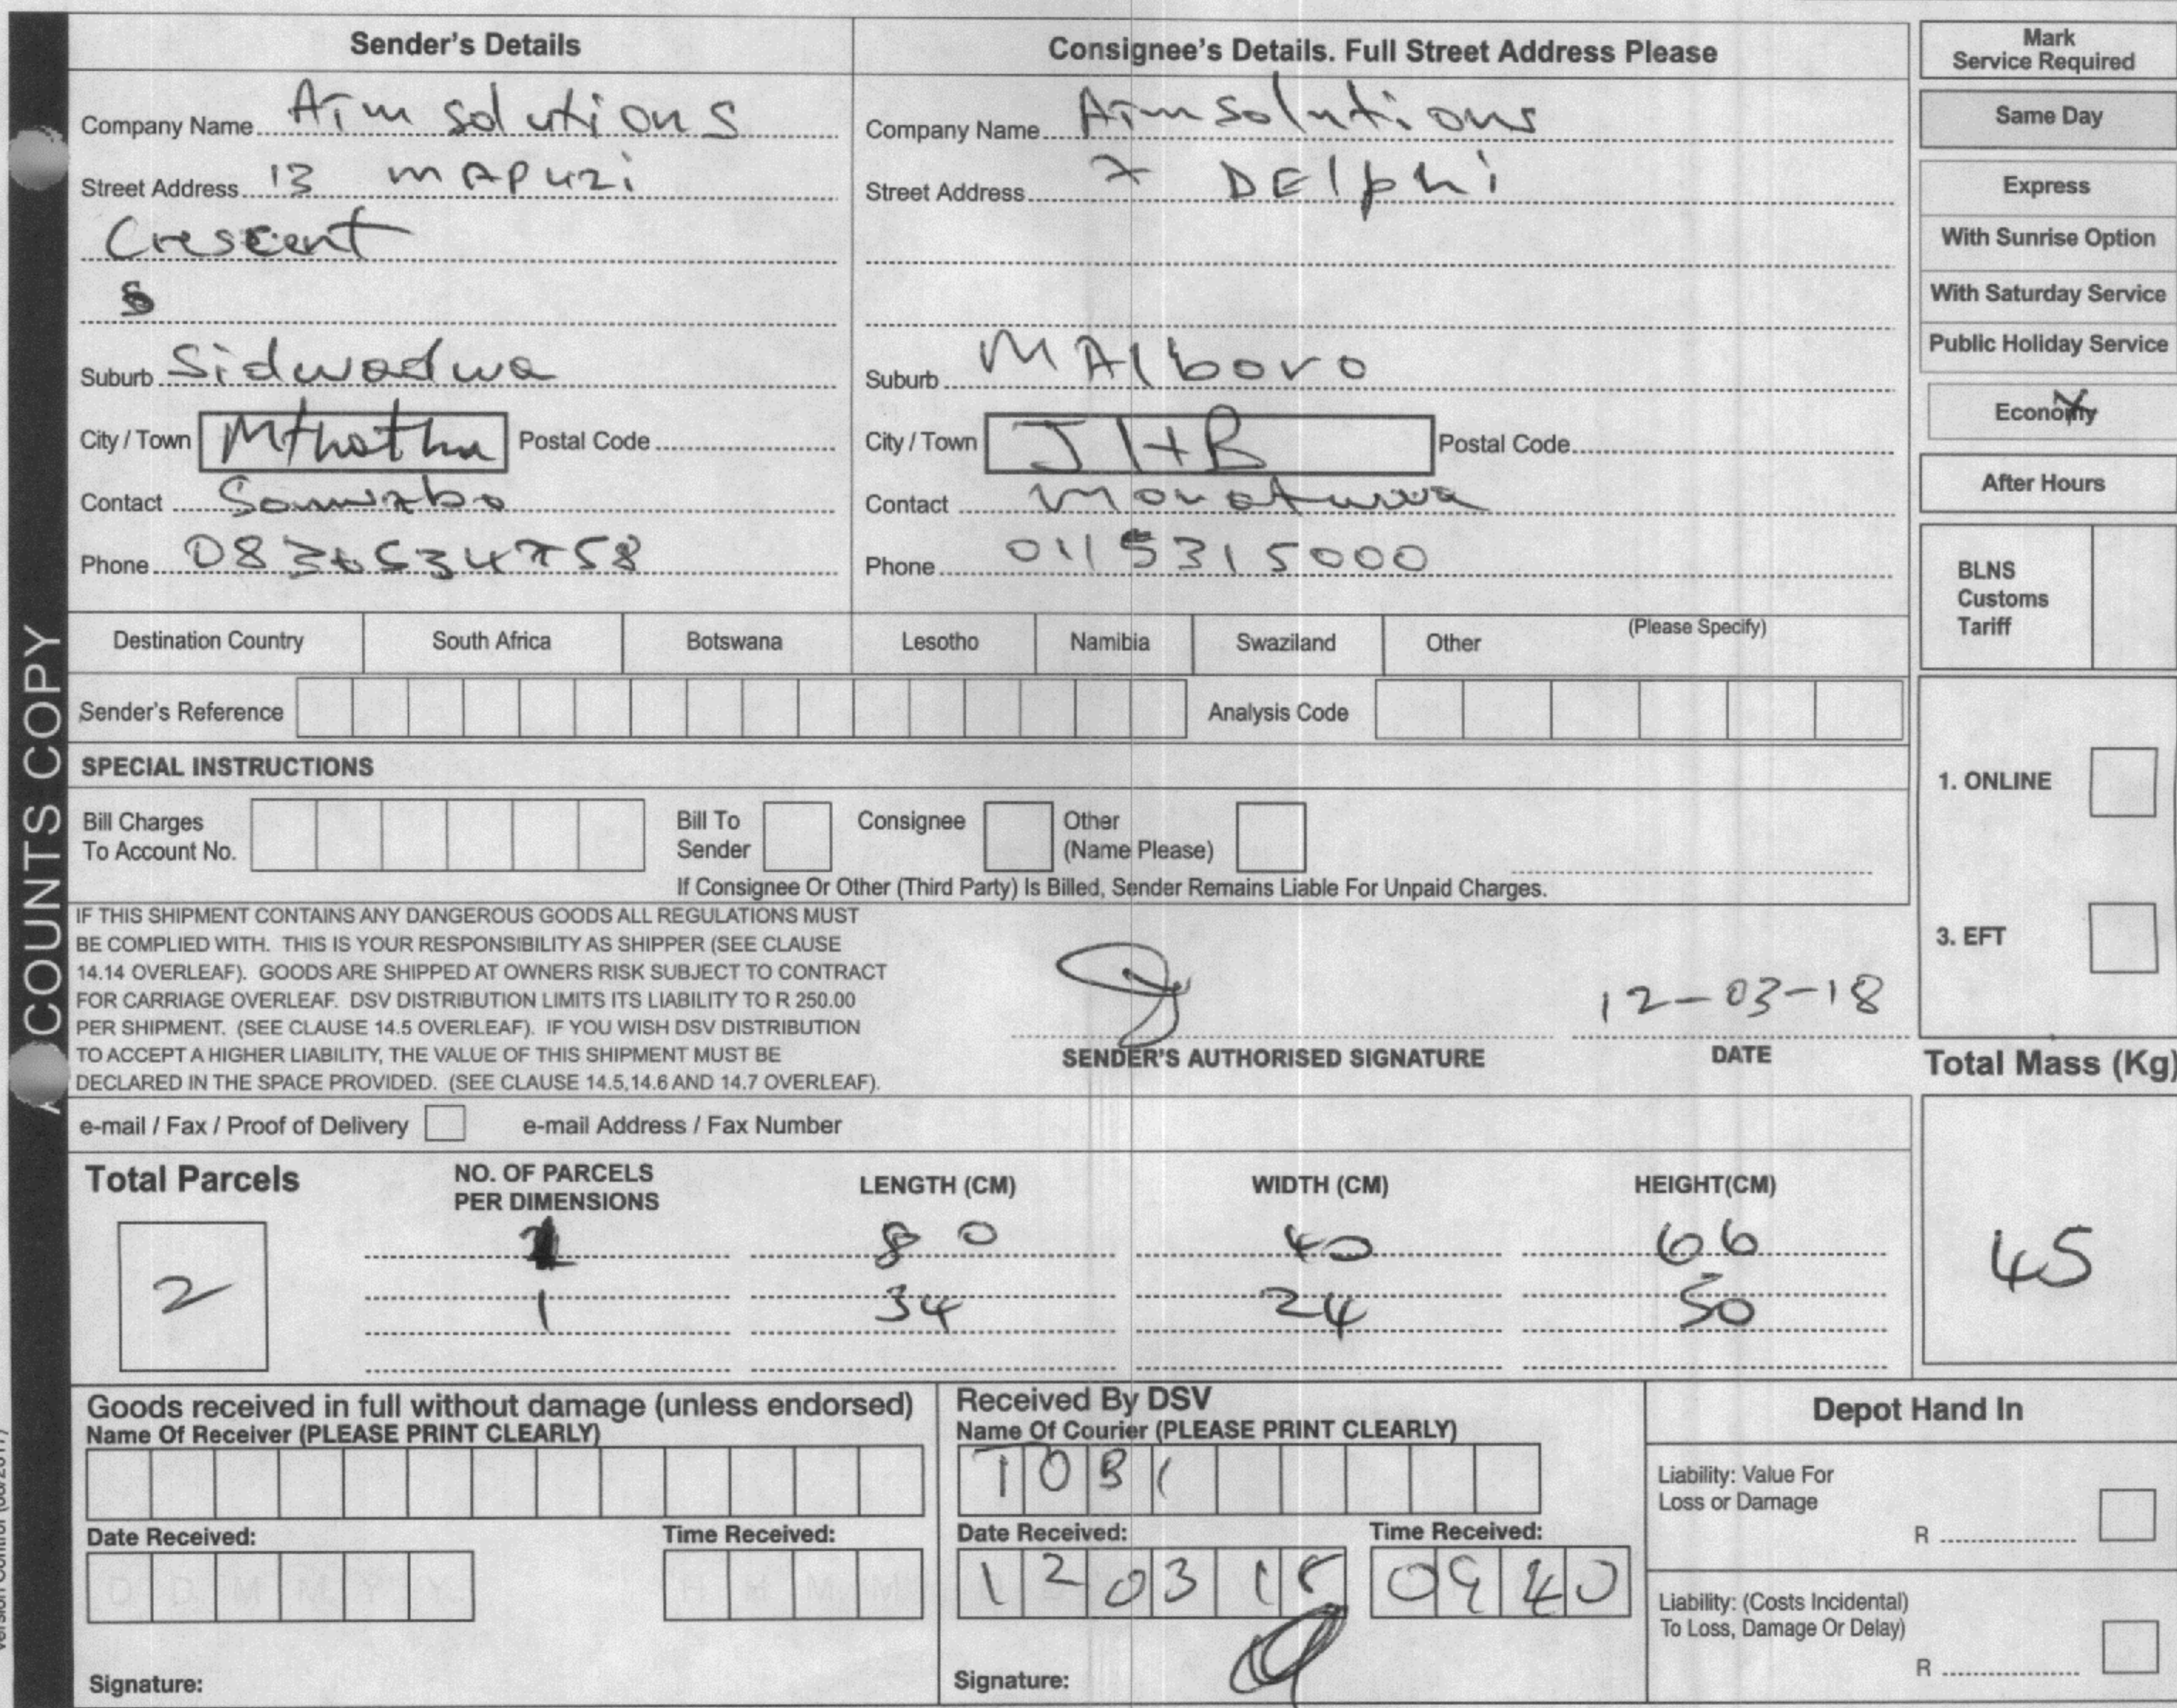 Sender's Details
Company Name Aim solutions
Street Address 13 MAPUZI
Crescent
Suburb Sidwadwa
City / Town Mthatha Postal Code
Contact
Phone
Consignee's Details. Full Street Address Please
Company Name Aim solutions
Street Address 7 DElphi
Suburb MAlboro
City / Town JHB Postal Code
Contact
Phone 0115315000
Mark
Service Required
Same Day
Express
With Sunrise Option
With Saturday Service
Public Holiday Service
Economy X
After Hours
BLNS
Customs
Tariff
Destination Country South Africa Botswana Lesotho Namibia Swaziland Other (Please Specify)
Sender's Reference Analysis Code
SPECIAL INSTRUCTIONS
Bill Charges
To Account No.
Bill To
Sender
Consignee
Other
(Name Please)
If Consignee Or Other (Third Party) Is Billed, Sender Remains Liable For Unpaid Charges.
1. ONLINE
3. EFT
IF THIS SHIPMENT CONTAINS ANY DANGEROUS GOODS ALL REGULATIONS MUST
BE COMPLIED WITH. THIS IS YOUR RESPONSIBILITY AS SHIPPER (SEE CLAUSE
14.14 OVERLEAF). GOODS ARE SHIPPED AT OWNERS RISK SUBJECT TO CONTRACT
FOR CARRIAGE OVERLEAF. DSV DISTRIBUTION LIMITS ITS LIABILITY TO R 250.00
PER SHIPMENT. (SEE CLAUSE 14.5 OVERLEAF). IF YOU WISH DSV DISTRIBUTION
TO ACCEPT A HIGHER LIABILITY, THE VALUE OF THIS SHIPMENT MUST BE
DECLARED IN THE SPACE PROVIDED. (SEE CLAUSE 14.5,14.6 AND 14.7 OVERLEAF).
12-03-18
SENDER'S AUTHORISED SIGNATURE DATE
e-mail / Fax / Proof of Delivery e-mail Address / Fax Number
Total Mass (Kg)
45
Total Parcels
2
NO. OF PARCELS
PER DIMENSIONS
LENGTH (CM) WIDTH (CM) HEIGHT(CM)
1 80 40 66
1 34 24 50
Goods received in full without damage (unless endorsed)
Name Of Receiver (PLEASE PRINT CLEARLY)
Date Received: Time Received:
D D M M Y Y H H M M
Signature:
Received By DSV
Name Of Courier (PLEASE PRINT CLEARLY)
TOBI
Date Received: Time Received:
120318 0940
Signature:
Depot Hand In
Liability: Value For
Loss or Damage
R
Liability: (Costs Incidental)
To Loss, Damage Or Delay)
R
COUNTS COPY